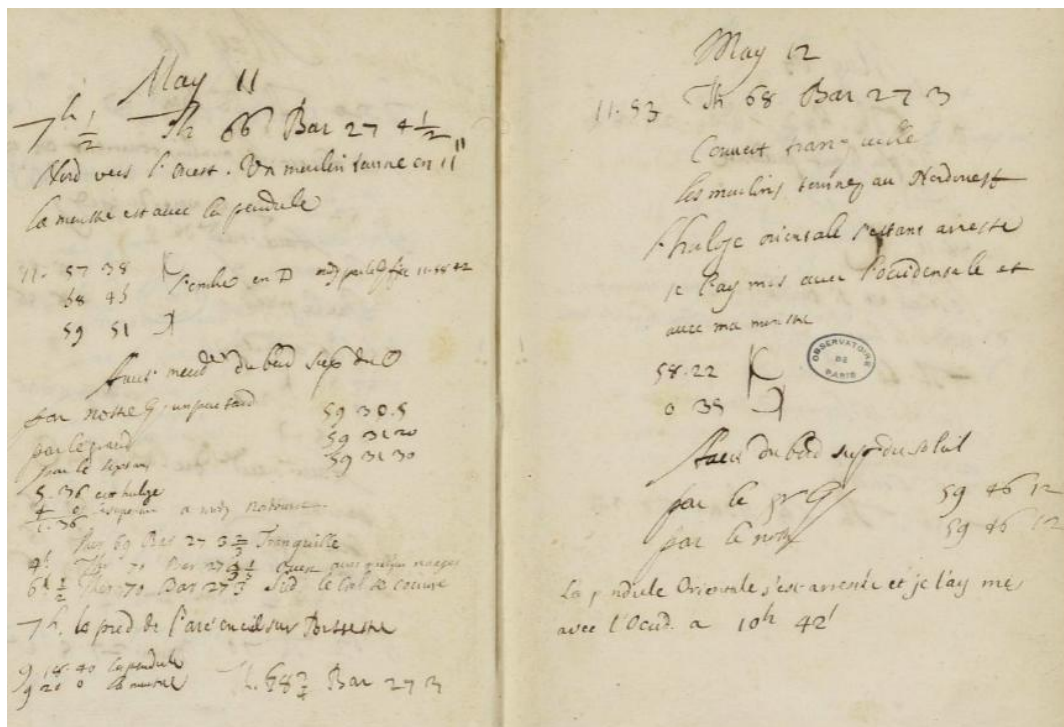 May 11
7h 1/2 Th 66 Bar 27 4 1/2
Nord vers l'ouest. Un moulin tourne en 11"
la monstre est avec la pendule
11. 57 38
58 45 l'ombre en D 11 58 42
59 51
haut merid du bord sup du ☉
par nostre un peu tard 59 30.5
par le grand 59 31 20
par le 59 31 30
5.36
4 0 a midy
1.36
Ther 69 Bar 27 3 2/3 Tranquille
4h Ther 70 Bar 27 3 1/3 Ouest avec quelques nuages
6h 1/2 Ther 70 Bar 27 3 1/3 Sud le Ciel se couvre
7h. le pied de l'arc en ciel sur Bissestre
9 18.40 la pendule
9 20 0 la monstre Th. 68 Bar 27 3
May 12
11.53 Th 68 Bar 27 3
Couvert tranquille
les moulins tournez au Nordouest
l'hulge orientale s'estant arresté
je l'ay mis avec l'occidentale et
avec ma monstre
58.22
0 35
OBSERVATOIRE DE PARIS
haut du bord sup du soleil
par le gr 59 46 12
par le nostre 59 46 12
la pendule Orientale s'est arrestée et je l'ay mis
avec l'Occid. a 10h 42'